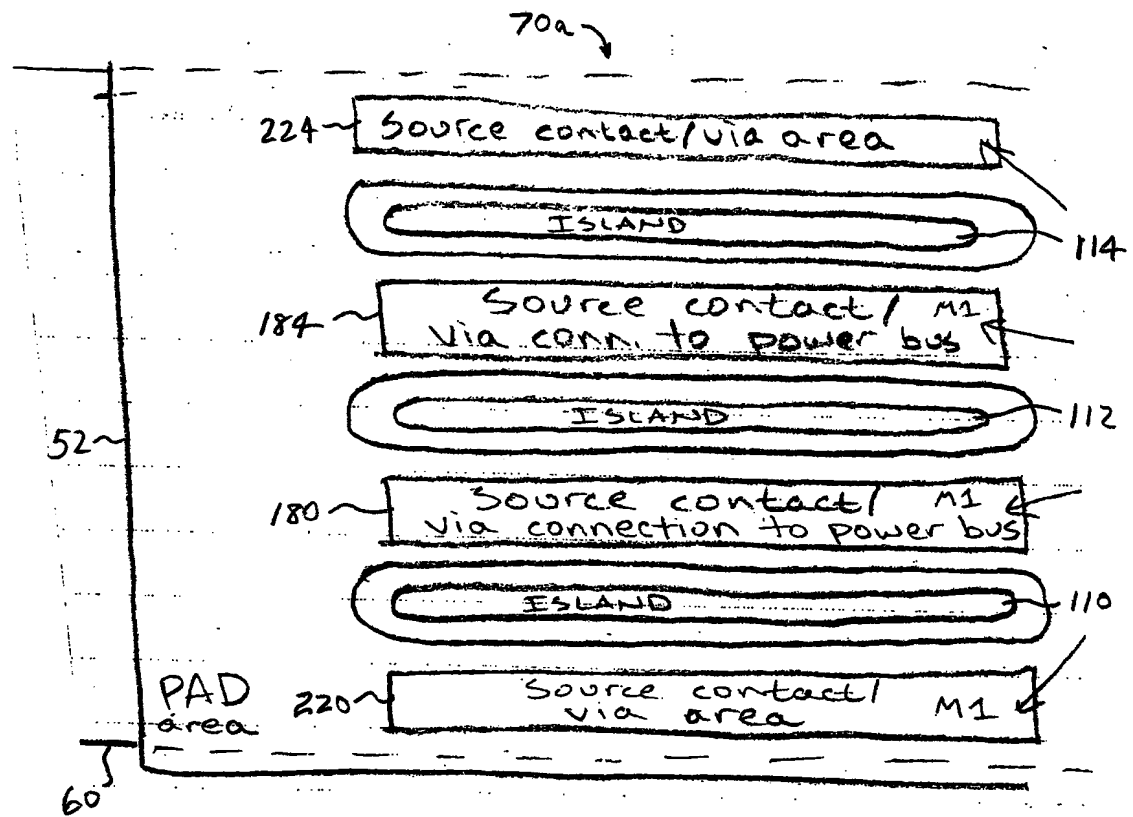 70a
224 Source contact/via area
ISLAND
114
184 Source contact/ M1
via conn. to power bus
ISLAND
112
52
180 Source contact/ M1
via connection to power bus
ISLAND
110
PAD
area
220 Source contact/
via area M1
60